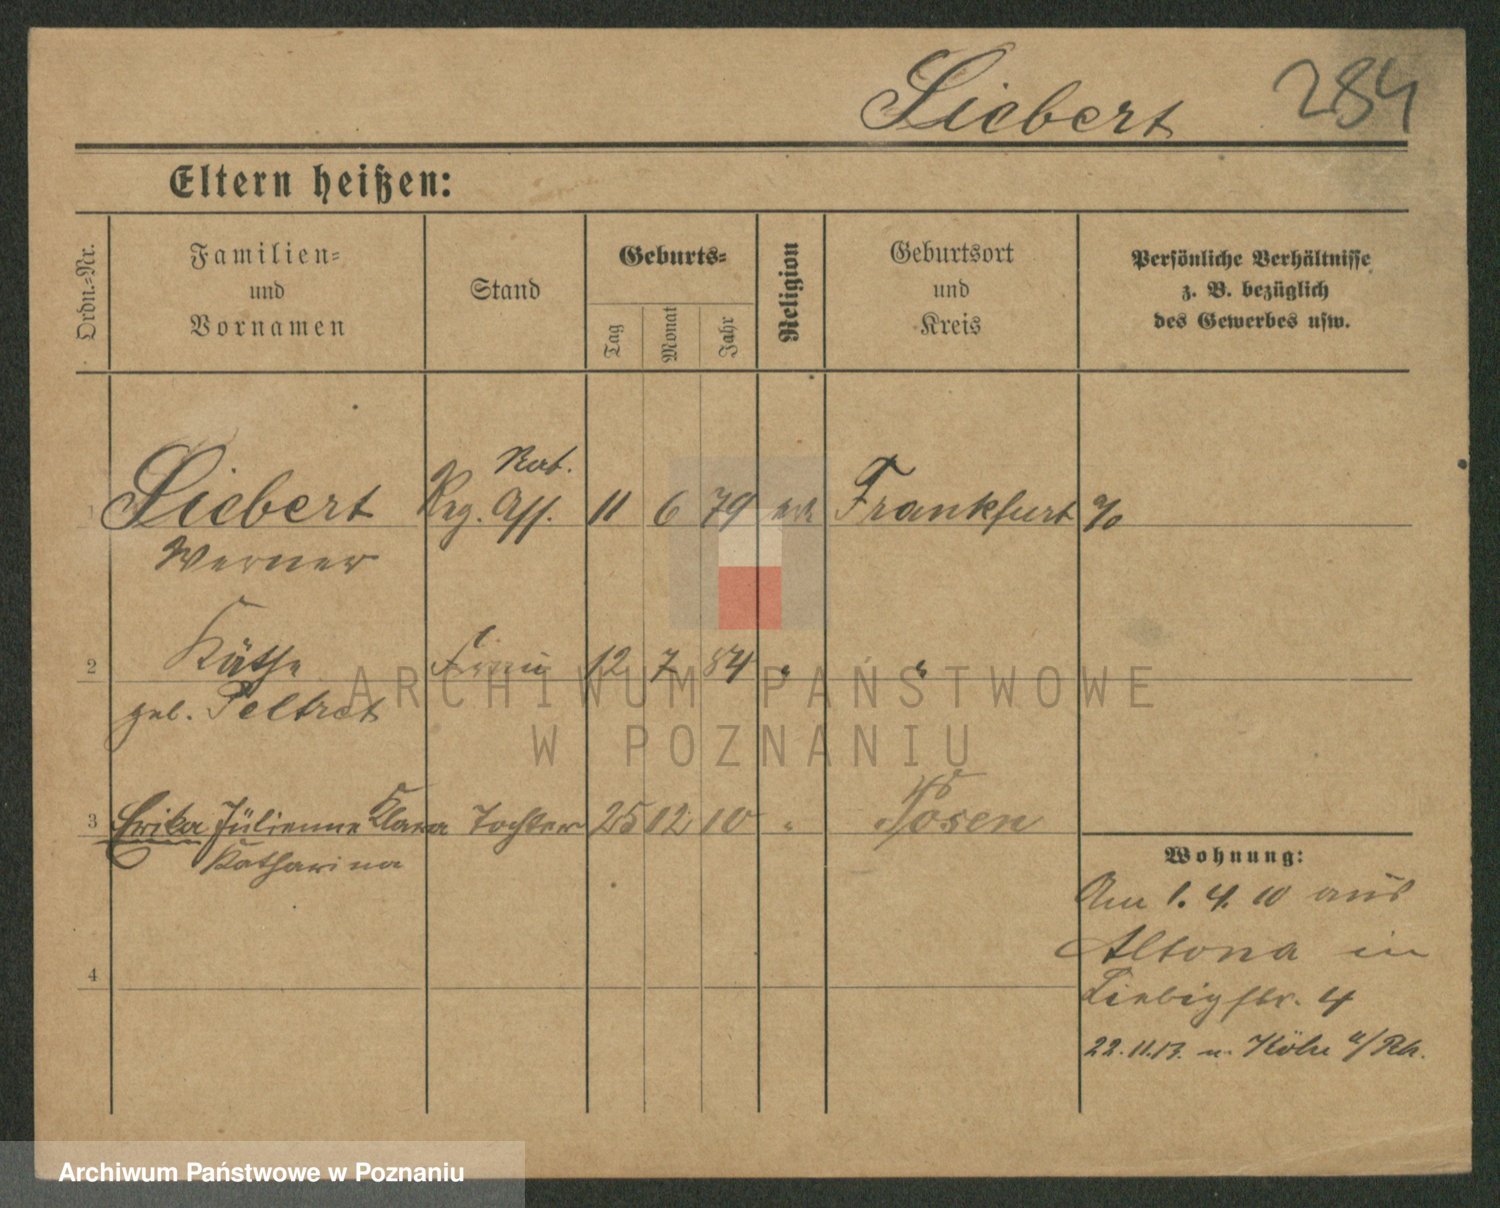 Siebert 284
Eltern heißen:
Ordn.-Nr.
Familien-
und
Vornamen
Stand
Geburts-
Tag
Monat
Jahr
Religion
Geburtsort
und
Kreis
Persönliche Verhältnisse
z. B. bezüglich
des Gewerbes usw.
Rat.
1 Siebert Reg. Ass. 11 6 79 Frankfurt a/O
Werner
2 Käthe Frau 12 7 84 " "
geb.
3 Erika Julienne Klara Tochter 25 12 10 " Posen
Katharina
4
Wohnung:
Am 1. 4. 10 aus
Altona in
Liebigstr. 4
22.11.13. n. Köln a/Rh.
ARCHIWUM PAŃSTWOWE
W POZNANIU
Archiwum Państwowe w Poznaniu